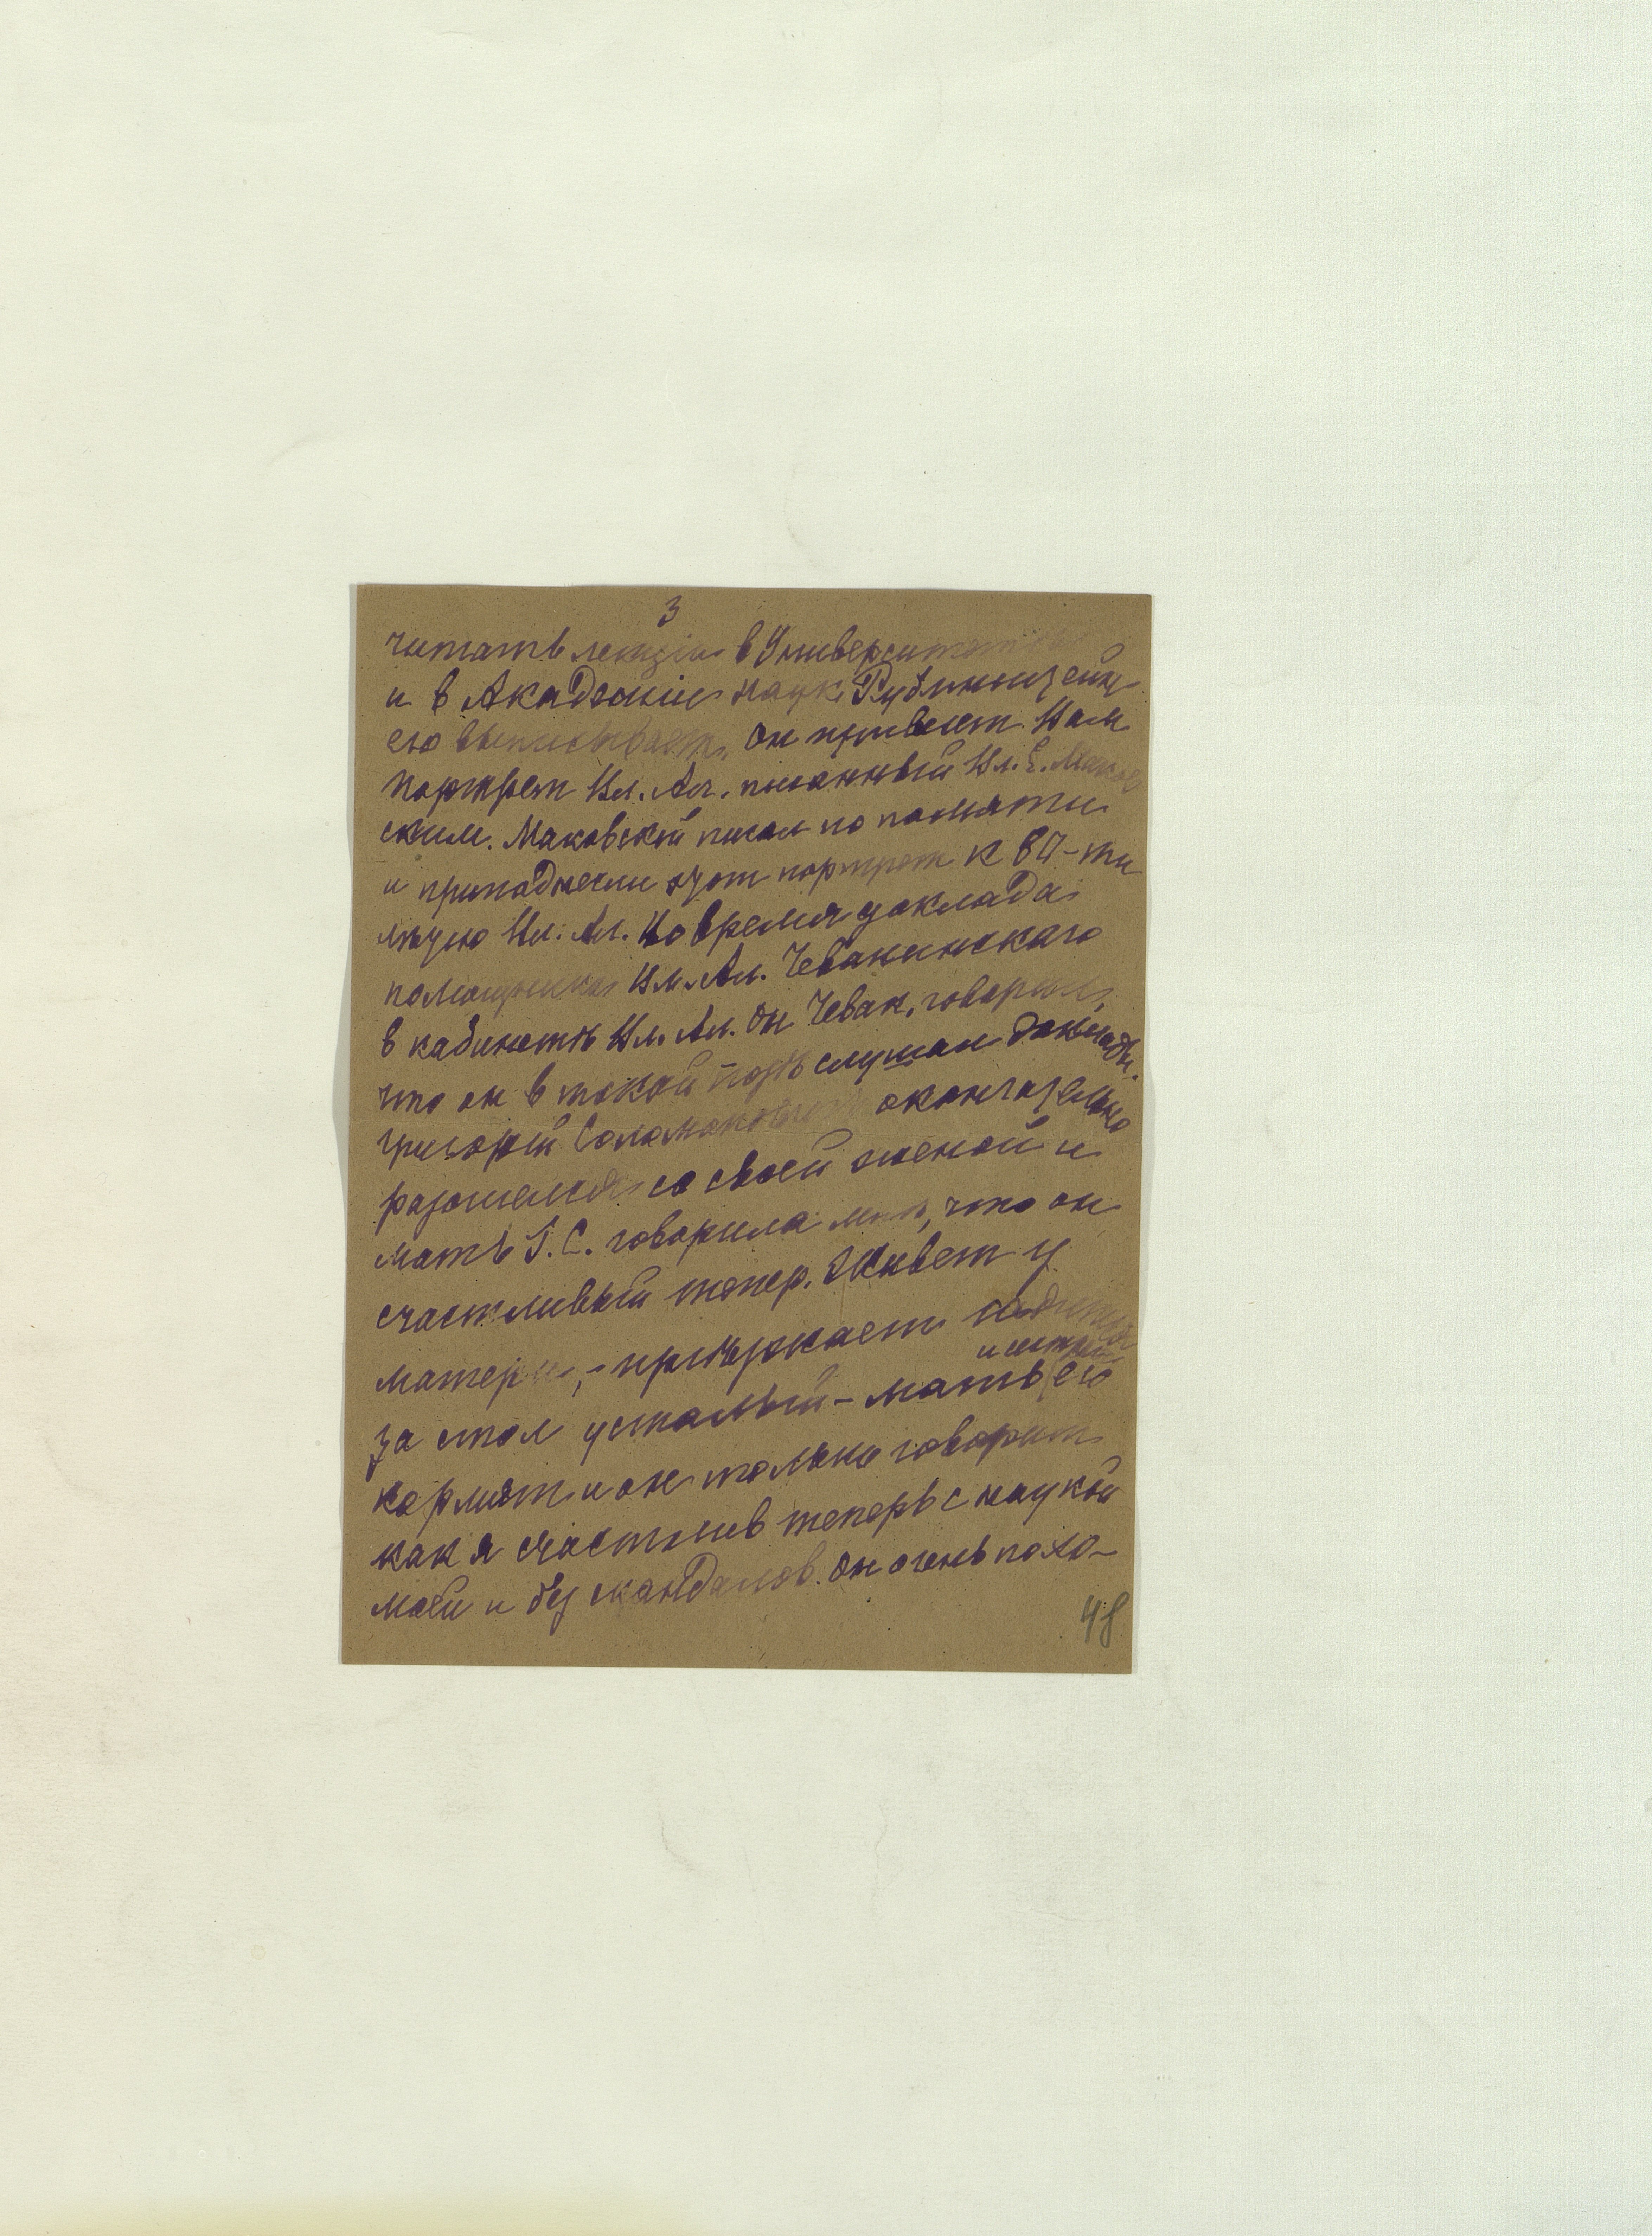 3
читать лекціи в Университет
и в Академіи Наук. Рубинштейн
его выписывает. Он привезет Вам
портрет Вл. Ал. писанный Вл. Е. Маков
ским. Маковскій писал по памяти
и приподнесли этот портрет к 80-ти
лѣтію Вл. Ал. Во время доклада
помощника Вл. Ал. Чевакинскаго
в кабинетѣ Вл. Ал. Он Чевак. говорил,
что он в такой позѣ слушал доклады.
Григорій Соломонович окончательно
разошелся со своей женой и
мать Г. С. говорила мнѣ, что он
счастливый тепер. Живет у
матери, - пріѣзжает садится
за стол усталый - мать его
и сестра
кормят и он только говорит
как я счастлив теперь с наукой
моей и без скандалов. Он очень похо-
48